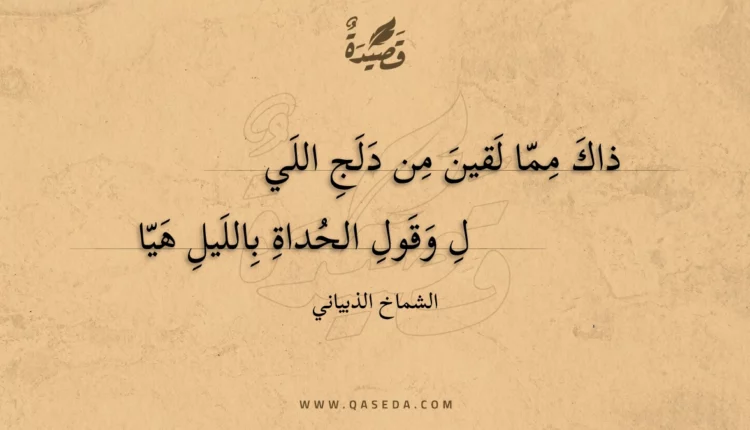 قَصِيْدَةٌ
ذاكَ مِمّا لَقينَ مِن دَلَجِ اللَي
لِ وَقَولِ الحُداةِ بِاللَيلِ هَيّا
الشماخ الذبياني
WWW.QASEDA.COM